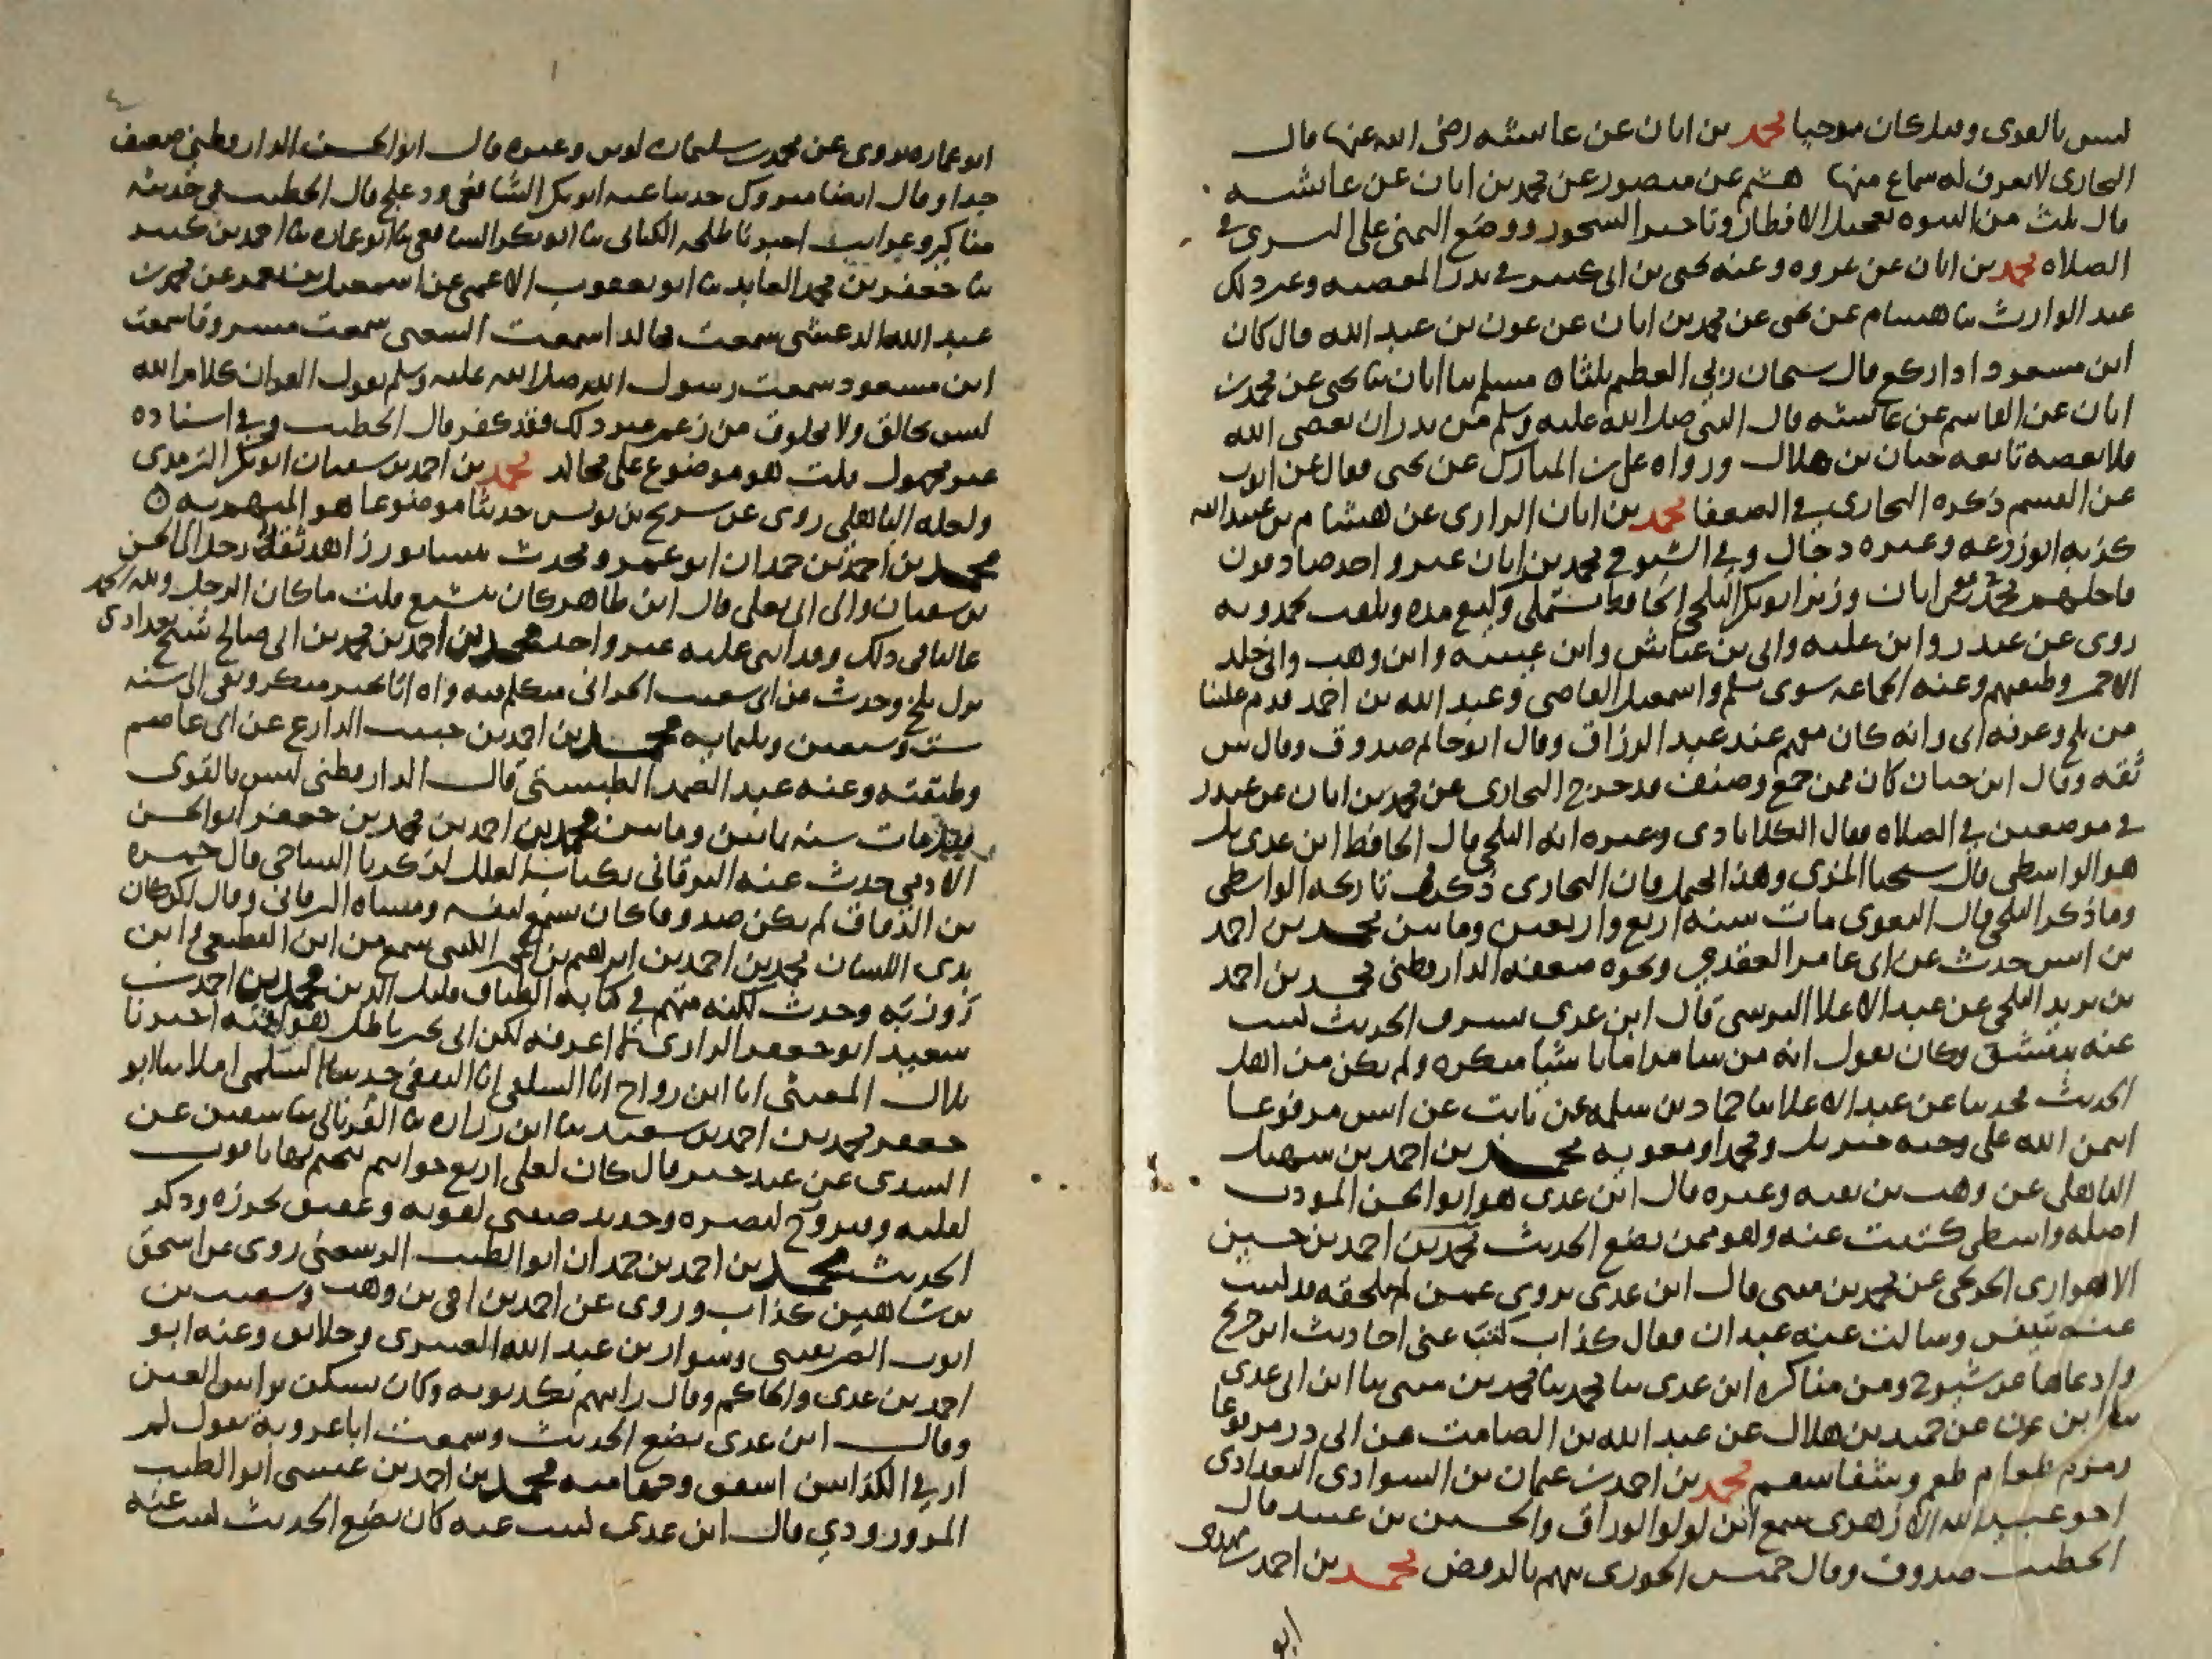 ليس بالقوي وقيل كان مرجيا محمد بن ابان عن عائشة رضي الله عنها قال
البخاري لا يعرف له سماع منها هشيم عن منصور عن محمد بن ابان عن عائشة
قال ثلث من النبوة تعجيل الافطار وتاخير السحور ووضع اليمنى على اليسرى في
الصلاة محمد بن ابان عن عروه وعنه يحيى بن ابي كثير في نذر المعصية وغير ذلك
عبد الوارث ثنا هشام عن يحيى عن محمد بن ابان عن عون بن عبد الله قال كان
ابن مسعود اذا ركع قال سبحان ربي العظيم ثلثا مسلم ثنا ابان ثنا يحيى عن محمد بن
ابان عن القاسم عن عائشة قال النبي صلى الله عليه وسلم من نذر ان يعصي الله
فلا يعصه تابعه حبان بن هلال ورواه علي بن المبارك عن يحيى فقال عن ايوب
عن القسم ذكره البخاري في الضعفا محمد بن ابان الرازي عن هشام بن عبيد الله
كذبه ابو زرعه وغيره دجال وفي الشيوخ محمد بن ابان غير واحد صادقون
فاجلهم محمد بن ابان وزير ابو بكر البلخي الحافظ مستملي وكيع مده ويلقب حمدويه
روى عن غندر وابن عليه وابي بن عياش وابن عيينه وابن وهب وابي خلد
الاحمر وطبقتهم وعنه الجماعه سوى مسلم واسمعيل القاضي وعبد الله بن احمد قدم علينا
من بلخ وعرفه ابي وانه كان معهم عند عبد الرزاق وقال ابو حاتم صدوق وقال س
ثقه وقال ابن حبان كان ممن جمع وصنف قد خرج البخاري عن محمد بن ابان عن غندر
في موضعين في الصلاه فقال الكلاباذي وغيره انه البلخي قال الحافظ ابن عدي بل
هو الواسطي قال شيخنا المزي وهذا محتمل فان البخاري ذكر في تاريخه الواسطي
وما ذكر البلخي قال البغوي مات سنه اربع واربعين ومايتين محمد بن احمد
بن انس حدث عن ابي عامر العقدي ونحوه ضعفه الدارقطني محمد بن احمد
بن يزيد البلخي عن عبد الاعلا النرسي قال ابن عدي يسرق الحديث كتبت
عنه بدمشق وكان يقول انه من سامرا فاتا باشيا منكره ولم يكن من اهل
الحديث فحدثنا عن عبد الاعلا ثنا حماد بن سلمه عن ثابت عن انس مرفوعا
ايتمن الله على وحيه جبريل ومحمدا ومعويه محمد بن احمد بن سهيل
الباهلي عن وهب بن بقيه وغيره قال ابن عدي هو ابو الحسن المودب
اصله واسطي كتبت عنه وهو ممن يضع الحديث محمد بن احمد بن حسين
الاهوازي الجريجي عن محمد بن مثنى قال ابن عدي يروي عمن لم يلحقه قد كتبت
عنه بتنيس وسالت عنه عبدان فقال كذاب كتب عني احاديث ابن جريج
وادعاها عن شيوخ ومن مناكره ابن عدي ثنا محمد ثنا محمد بن مثنى ثنا ابن ابي عدي
ثنا ابن عون عن حميد بن هلال عن عبد الله بن الصامت عن ابي ذر مرفوعا
زمزم طعام طعم وشفا سقم محمد بن احمد بن عثمان بن السوادي البغدادي
اخو عبيد الله الازهري سمع ابن لولو الوراق والحسين بن عبيد قال
الخطيب صدوق وقال خميس الحوزي يتهم بالرفض محمد بن احمد بن مهدي
ابو
ابو عماره يروي عن محمد بن سليمان لوين وغيره قال ابو الحسن الدارقطني ضعيف
جدا وقال ايضا متروك حدثنا عنه ابو بكر الشافعي ودعلج قال الخطيب في حديثه
مناكير وغرايب اخبرنا طلحه الكتاني ثنا ابو بكر الشافعي ثنا ابو عماره ثنا احمد بن كثير
ثنا جعفر بن محمد العابد ثنا ابو يعقوب الاعمى عن اسمعيل بن معمر عن محمد بن
عبد الله الدغشي سمعت مجالدا سمعت الشعبي سمعت مسروقا سمعت
ابن مسعود سمعت رسول الله صلى الله عليه وسلم يقول القران كلام الله
ليس بخالق ولا مخلوق من زعم غير ذلك فقد كفر قال الخطيب وفي اسناده
غير مجهول قلت هو موضوع على مجالد محمد بن احمد بن سفيان ابو بكر الترمذي
ولعله الباهلي روى عن سريج بن يونس حديثا موضوعا هو المتهم به
محمد بن احمد بن حمدان ابو عمرو محدث نيسابور زاهد ثقة رحل الى الحسن
بن سفيان والى ابي يعلى قال ابن طاهر كان يتشيع قلت ما كان الرجل ولله الحمد
غاليا في ذلك وقد اثنى عليه غير واحد محمد بن احمد بن محمد بن ابي صالح شيخ بغدادي
نزل بلخ وحدث عن ابي شعيب الحراني متكلم فيه واه اتا بخبر منكر وبقي الى سنه
ست وسبعين وثلثمايه محمد بن احمد بن حبيب الذارع عن ابي عاصم
وطبقته وعنه عبد الصمد الطبستي قال الدارقطني ليس بالقوي
مات سنه ثمانين ومايتين محمد بن احمد بن محمد بن جعفر ابو الحسن
الادمي حدث عنه البرقاني بكتاب العلل لزكريا الساجي قال حمزه
بن الدقاق لم يكن صدوقا كان يسمع لنفسه ومشاه البرقاني وقال لكن كان
بذي اللسان محمد بن احمد بن ابراهيم بن المجبر الليثي سمع من ابن القطيعي وابن
روزبه وحدث لكنه متهم في كتابه الطباق قليل الدين محمد بن احمد بن
سعيد ابو جعفر الرازي لا اعرفه لكن اتى بخبر باطل هو افته اخبرنا
بلال المغيثي انا ابن رواج انا السلفي انا الثقفي حدثنا السلمي املا ثنا ابو
جعفر محمد بن احمد بن سعيد ثنا ابن وراره ثنا الفريابي ثنا سفين عن
السدي عن عبد خير قال كان لعلي اربع خواتيم يتختم بها ياقوت
لقلبه وفيروزج لنصره وحديد صيني لقوته وعقيق لحرزه وذكر
الحديث محمد بن احمد بن حمدان ابو الطيب الرسعني روى عن اسحق
بن شاهين كذاب وروى عن احمد بن اخي بن وهب وشعيب بن
ايوب الصريفيني وسوار بن عبد الله العنبري وخلايق وعنه ابو
احمد بن عدي والحاكم وقال رايتهم يكذبونه وكان يسكن براس العين
وقال ابن عدي يضع الحديث وسمعت ابا عروبة يقول لم
ار في الكذابين اصفق وجها منه محمد بن احمد بن عيسى ابو الطيب
المروروذي قال ابن عدي كتبت عنه كان يضع الحديث كتبت عنه